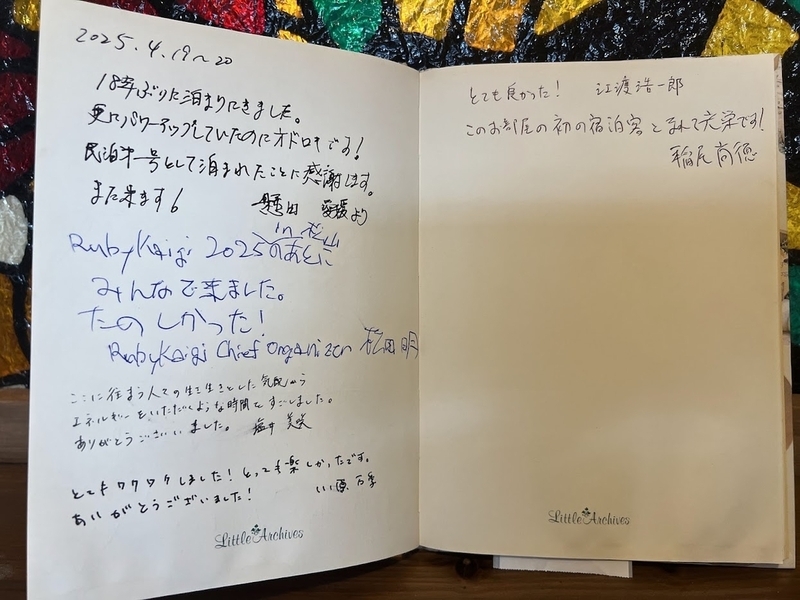 2025.4.19〜20
18年ぶりに泊まりにきました。
更にパワーアップしていたのにオドロキです!
民泊オ一号として泊まれたことに感謝します。
また来ます
愛媛より
RubyKaigi 2025 in 松山 のあとに
みんなで来ました。
たのしかった!
RubyKaigi Chief Organizer 松田 明
ここに住まう人々の生き生きとした気配から
エネルギーをいただくような時間をすごしました。
ありがとうございいました。 塩井 美咲
とてもワクワクしました!とっても楽しかったです。
ありがとうございました!
Little Archives
とても良かった! 江渡浩一郎
このお部屋の初の宿泊客とまれて光栄です!
稲尾尚徳
Little Archives